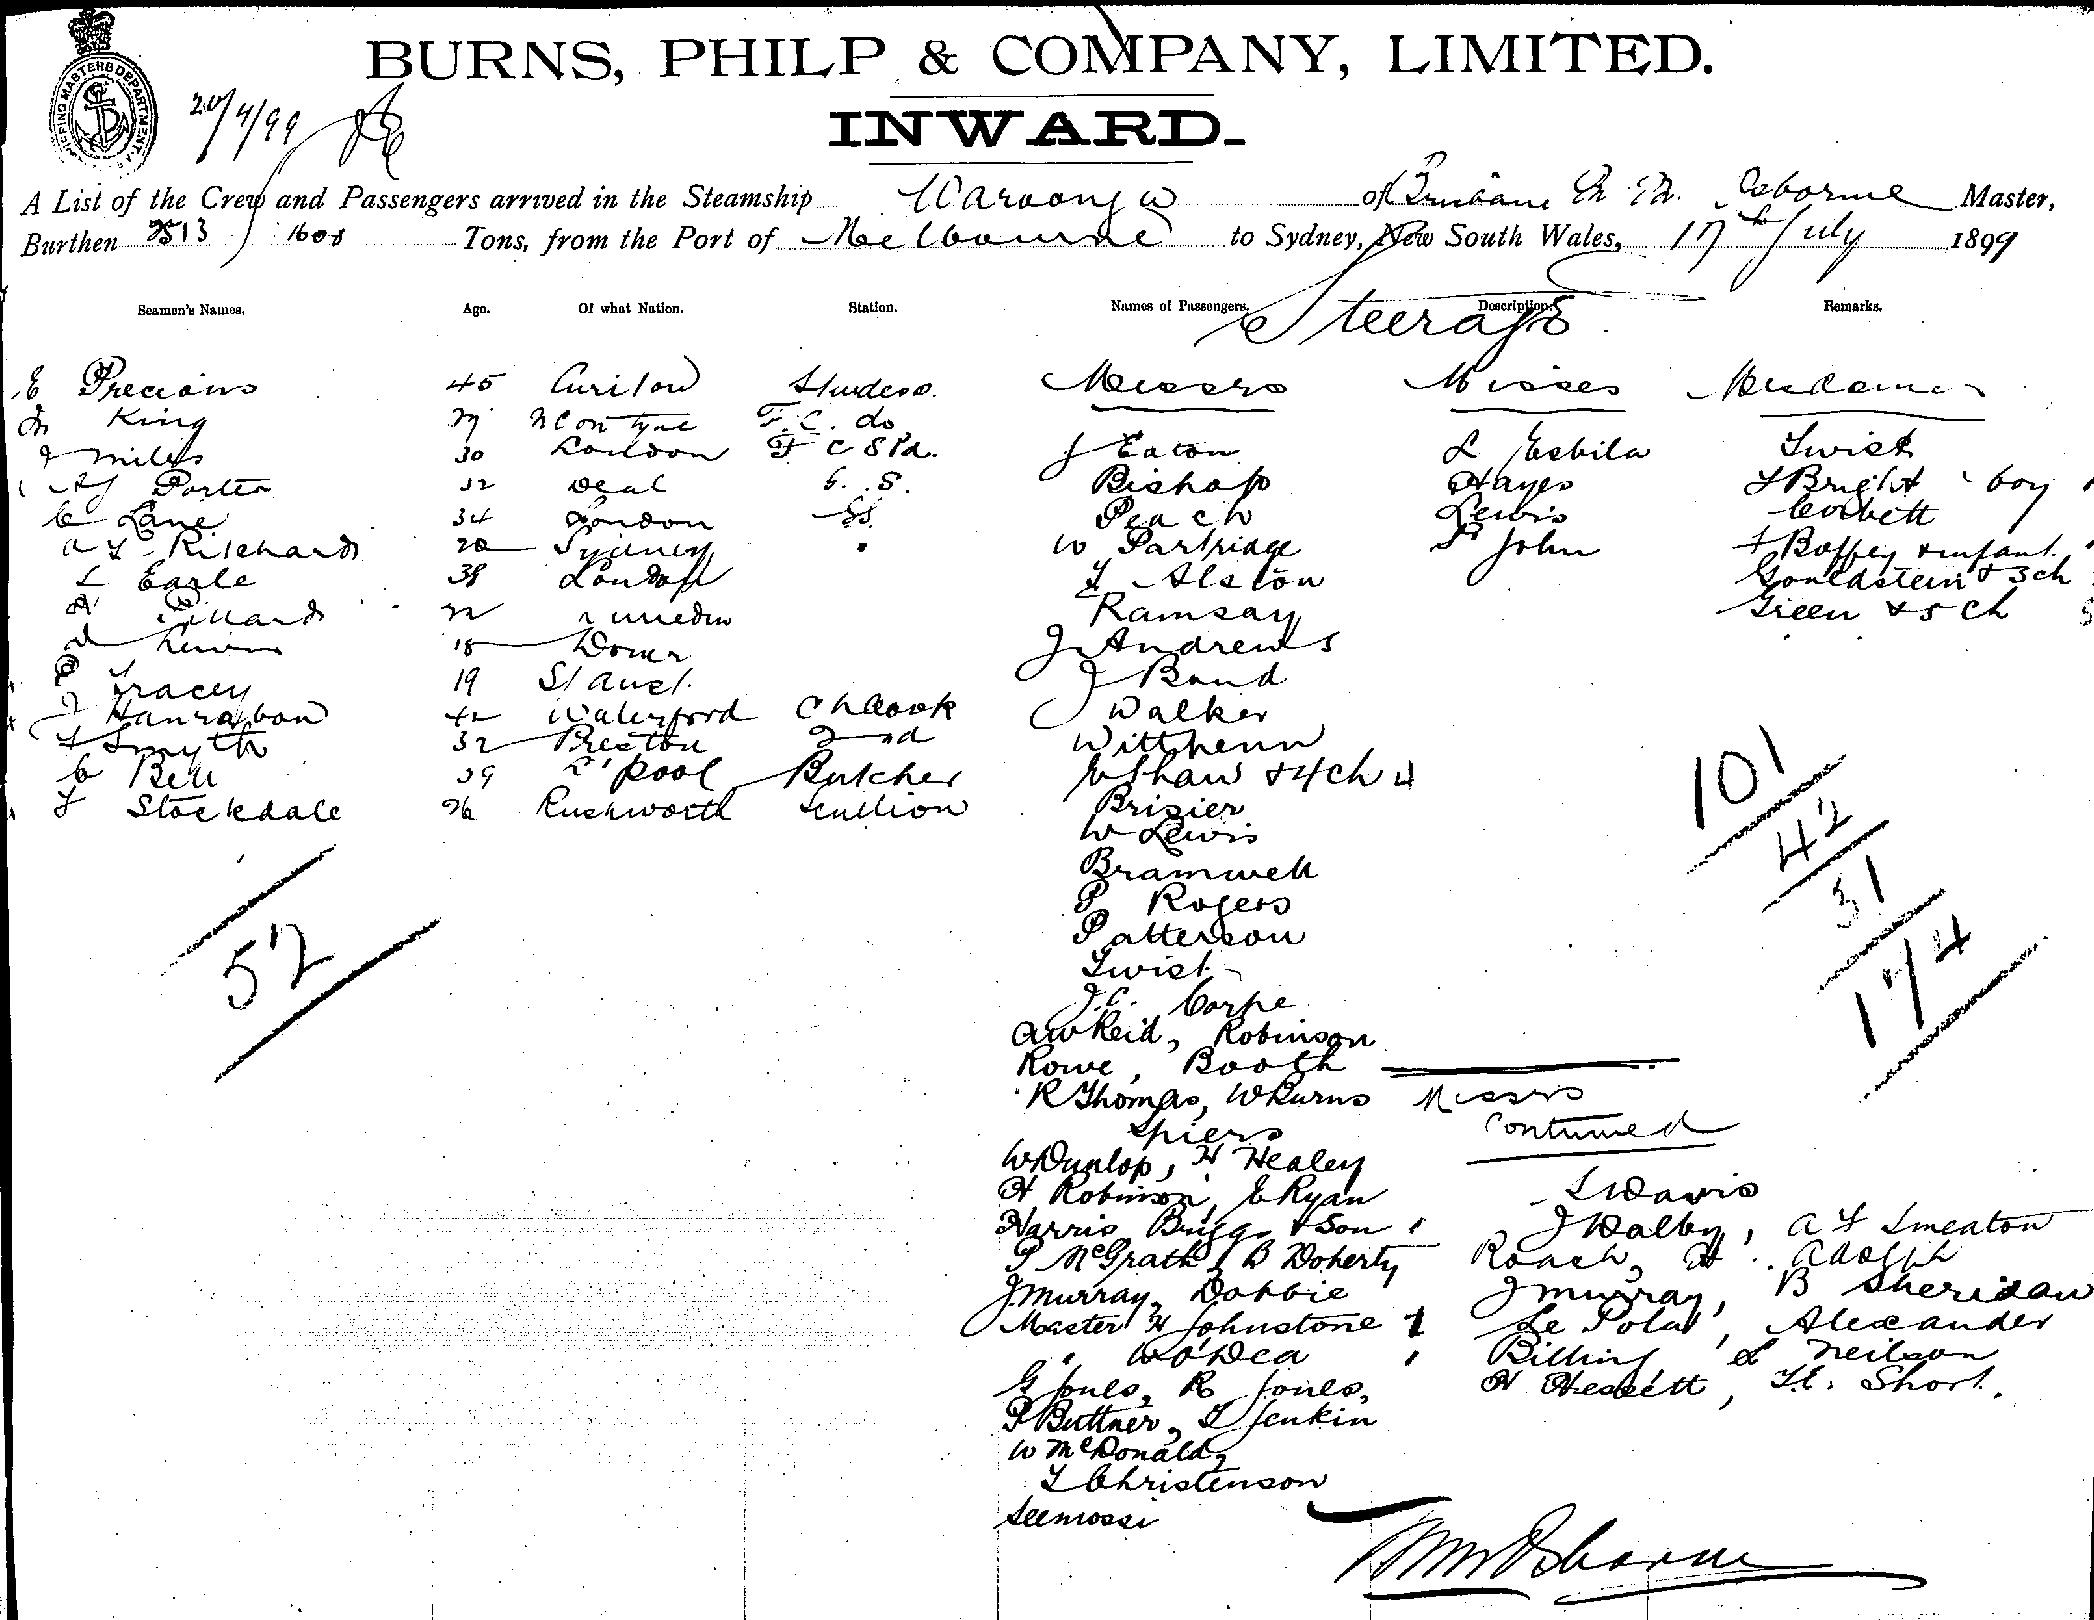 BURNS, PHILP & COMPANY, LIMITED.
INWARD.
SHIPPING MASTERS DEPARTMENT
A List of the Crew and Passengers arrived in the Steamship Waroonga of Brisbane Osborne Master,
Burthen 2513 / 1608 Tons, from the Port of Melbourne to Sydney, New South Wales, 17th July 1899
Seamen's Names. Age. Of what Nation. Station. Names of Passengers. Descriptions. Remarks.
Steerage
E Precious 45 Stewdess. Messrs Misses Mesdames
King N C on Tyne F. C. do
J Miles 30 London F C Std. J Eaton L Twist
Porter 32 Deal S. S. Bishop Hayes Bright boy
C Lane 34 London Peach Lewis Corbett
Ritchards 20 Sydney W Partridge St John Boffey & infant
L Earle 38 London Alston Gouldstein & 3 ch
Pollard 22 Ramsay Green & 5 ch
18 Dover J Andrews
Tracey 19 St Aust. J Bond
J Hanrahan 42 Waterford Ch Cook J Walker
Smyth 32 Preston 2nd
C Bell 39 L'pool Butcher E Shaw & 4 ch 4
Stockdale 26 Rushworth Scullion Brisier
W Lewis
Bramwell
P Rogers
Patterson
Twist
J.C. Corpe
A W Reid, Robinson
Rowe, Booth
R Thomas, W Burns
Spiers
W Dunlop, H Healey
H Robinson, E Ryan
Harris Briggs & Son 1
P McGrath, B Doherty
J Murray, Dobbie
Master H Johnstone 1
" W O'Dea 1
G Jones, R Jones,
P Buttner, Jenkin
W McDonald,
Christenson
Messrs
Continued
Davis
J Dalby, Smeaton
Roach, H Adolph
J Murray, B Sheridan
Alexander
Billing, L Neilson
Short.
52
101
42
31
174